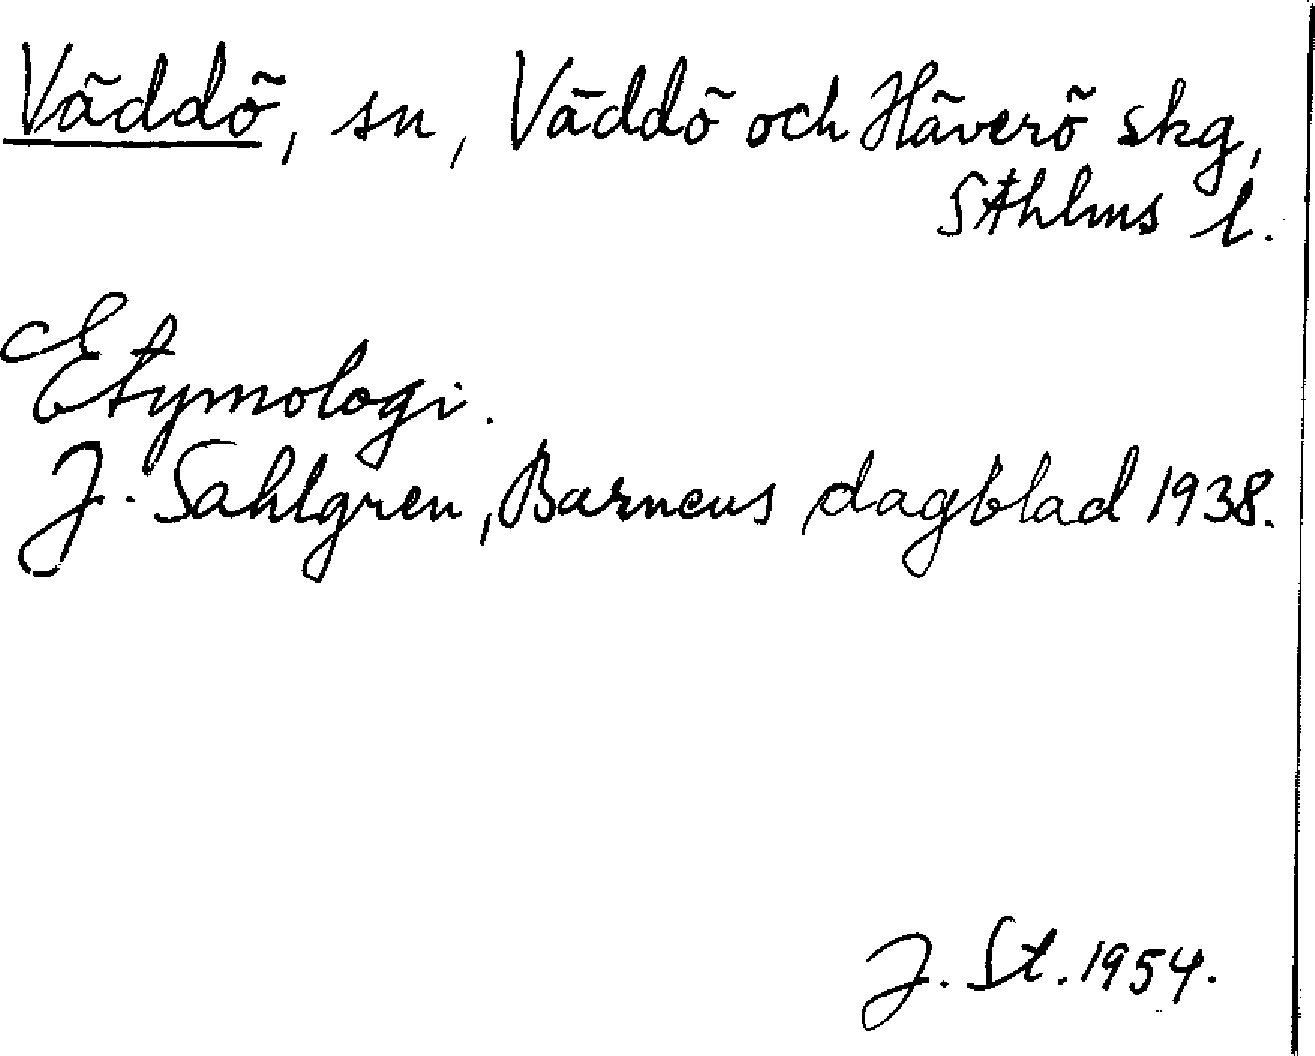 Väddö, sn, Väddö och Häverö skg,
Sthlms l.
Etymologi.
J. Sahlgren, Barnens dagblad 1938.
J. St. 1954.